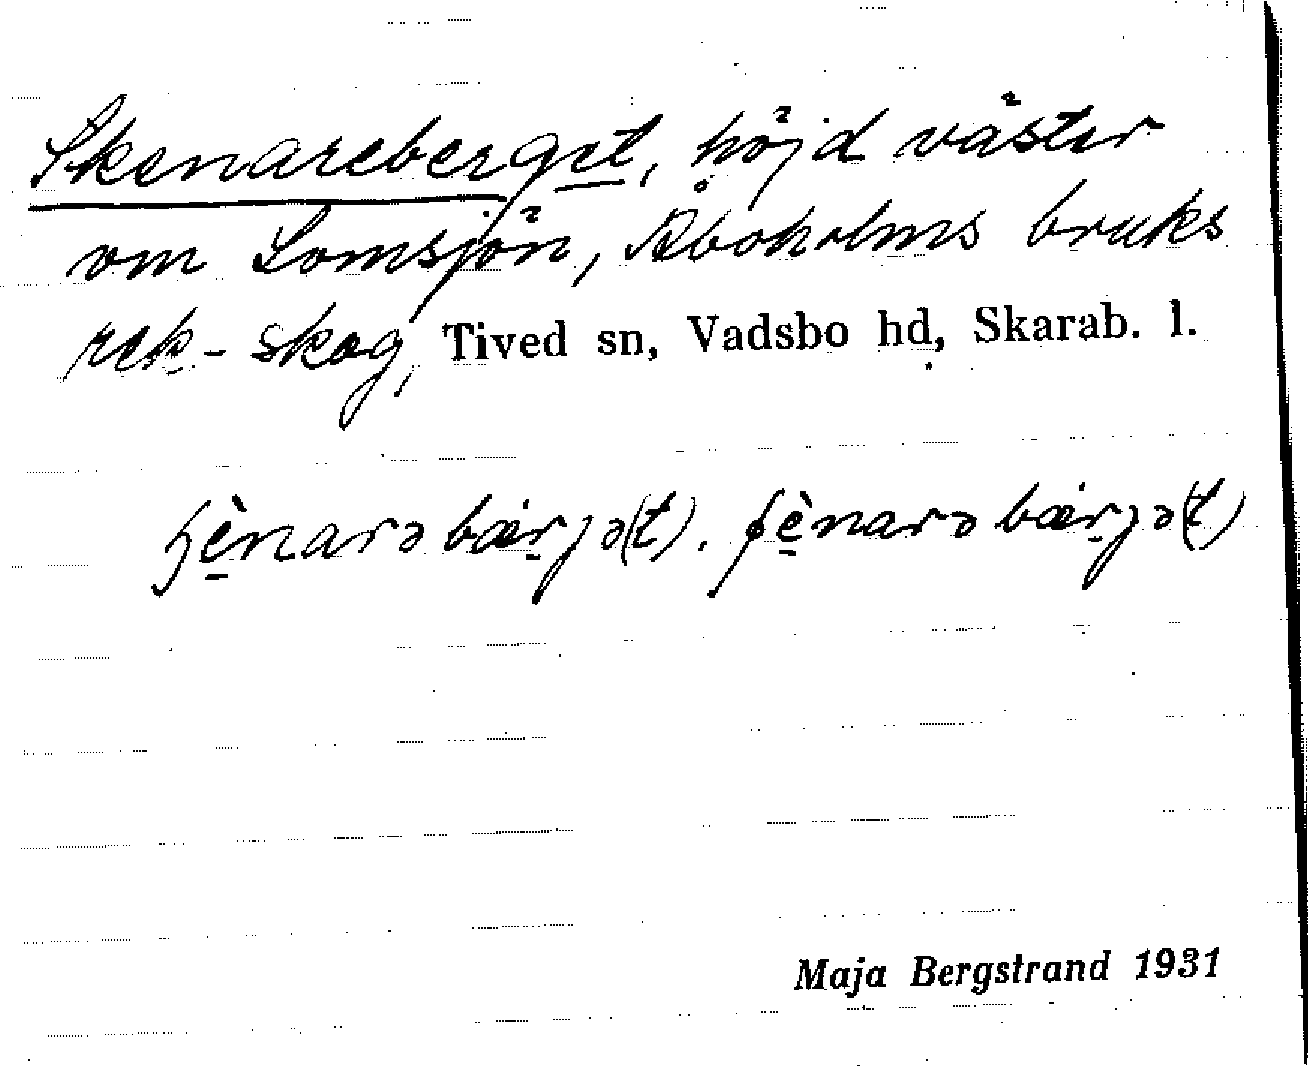 Skenareberget, höjd väster
om Lomsjön, Åboholms bruks
rek-skog, Tived sn, Vadsbo hd, Skarab. l.
bærjə(t). bærjə(t)
Maja Bergstrand 1931